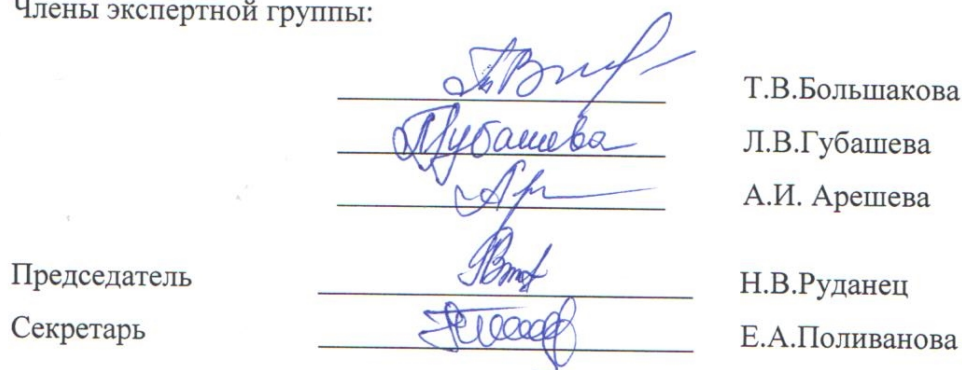 Члены экспертной группы:
Т.В.Большакова
Губашева Л.В.Губашева
А.И. Арешева
Председатель Н.В.Руданец
Секретарь Е.А.Поливанова